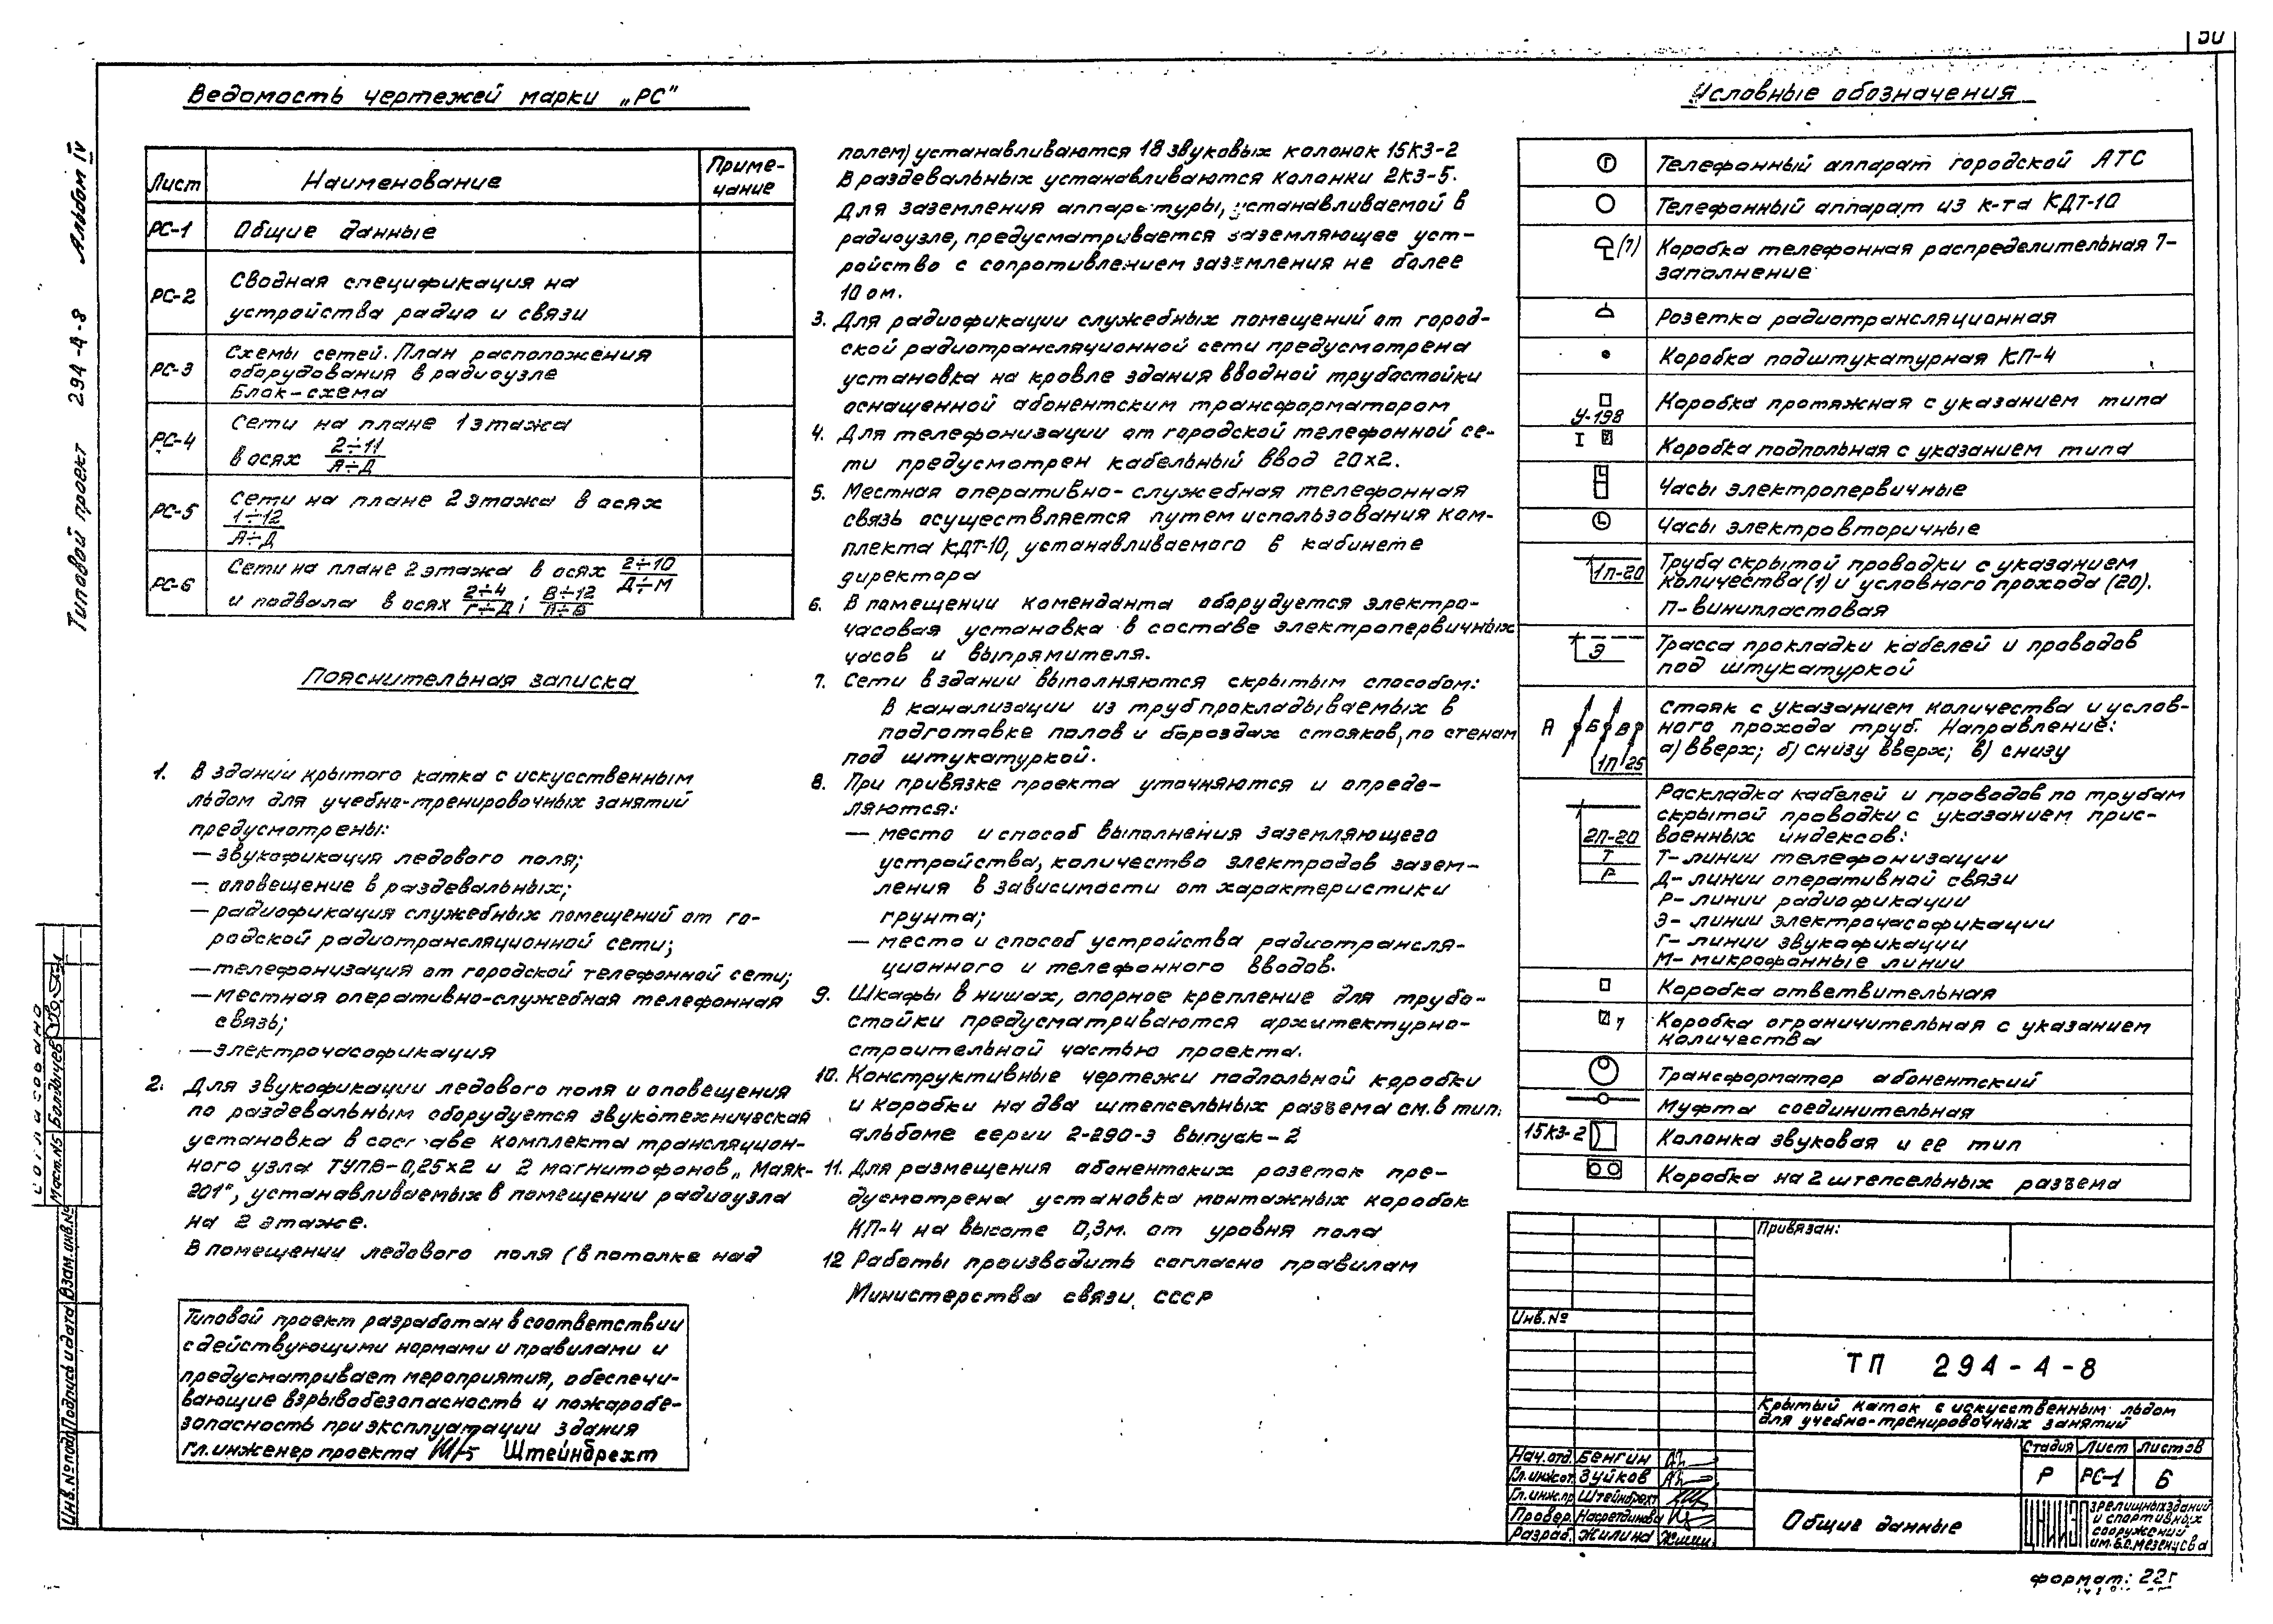 50
Типовой проект 294-4-8 Альбом IV
Ведомость чертежей марки „РС"
Лист Наименование Приме-
чание
РС-1 Общие данные
РС-2 Сводная спецификация на
устройства радио и связи
РС-3 Схемы сетей. План расположения
оборудования в радиоузле
Блок-схема
РС-4 Сети на плане 1 этажа
в осях 2÷11
А÷Д
РС-5 Сети на плане 2 этажа в осях
1÷12
А÷Д
РС-6 Сети на плане 2 этажа в осях 2÷10
Д÷М
и подвала в осях 2÷4 ; 8÷12
Г÷Д
Пояснительная записка
1. В здании крытого катка с искуственным
льдом для учебно-тренировочных занятий
предусмотрены:
— звукофикация ледового поля;
— оповещение в раздевальных;
— радиофикация служебных помещений от го-
родской радиотрансляционной сети;
— телефонизация от городской телефонной сети;
— местная оперативно-служебная телефонная
связь;
— электрочасофикация
2. Для звукофикации ледового поля и оповещения
по раздевальным оборудуется звукотехническая
установка в составе комплекта трансляцион-
ного узла ТУПВ-0,25х2 и 2 магнитофонов „Маяк-
201", устанавливаемых в помещении радиоузла
на 2 этаже.
В помещении ледового поля (в потолке над
Типовой проект разработан в соответствии
с действующими нормами и правилами и
предусматривает мероприятия, обеспечи-
вающие взрывобезопасность и пожаробе-
зопасность при эксплуатации здания
Гл. инженер проекта Штейнбрехт
полем) устанавливаются 18 звуковых колонок 15КЗ-2
В раздевальных устанавливаются колонки 2КЗ-5.
Для заземления аппаратуры, устанавливаемой в
радиоузле, предусматривается заземляющее уст-
ройство с сопротивлением заземления не более
10 ом.
3. Для радиофикации служебных помещений от город-
ской радиотрансляционной сети предусмотрена
установка на кровле здания вводной трубостойки
оснащенной абонентским трансформатором
4. Для телефонизации от городской телефонной се-
ти предусмотрен кабельный ввод 20х2.
5. Местная оперативно-служебная телефонная
связь осуществляется путем использования ком-
плекта КДТ-10, устанавливаемого в кабинете
директора
6. В помещении коменданта оборудуется электро-
часовая установка в составе электропервичных
часов и выпрямителя.
7. Сети в здании выполняются скрытым способом:
в канализации из труб прокладываемых в
подготовке полов и бороздах стояков, по стенам
под штукатуркой.
8. При привязке проекта уточняются и опреде-
ляются:
— место и способ выполнения заземляющего
устройства, количество электродов зазем-
ления в зависимости от характеристики
грунта;
— место и способ устройства радиотрансля-
ционного и телефонного вводов.
9. Шкафы в нишах, опорное крепление для трубо-
стойки предусматриваются архитектурно-
строительной частью проекта.
10. Конструктивные чертежи подпольной коробки
и коробки на два штепсельных разъема см. в тип.
альбоме серии 2-290-3 выпуск-2
11. Для размещения абонентских розеток пре-
дусмотрена установка монтажных коробок
КП-4 на высоте 0,3м. от уровня пола
12 Работы производить согласно правилам
Министерства связи СССР
Условные обозначения
Г Телефонный аппарат городской АТС
Телефонный аппарат из к-та КДТ-10
(7) Коробка телефонная распределительная 7-
заполнение
Розетка радиотрансляционная
Коробка подштукатурная КП-4
У-198 Коробка протяжная с указанием типа
I Коробка подпольная с указанием типа
Часы электропервичные
Часы электровторичные
1П-20 Труба скрытой проводки с указанием
количества (1) и условного прохода (20).
П-винипластовая
Э Трасса прокладки кабелей и проводов
под штукатуркой
А Б В 1П 25 Стояк с указанием количества и услов-
ного прохода труб. Направление:
а) вверх; б) снизу вверх; в) снизу
2П-20 Т Р Раскладка кабелей и проводов по трубам
скрытой проводки с указанием прис-
военных индексов:
Т- линии телефонизации
Д- линии оперативной связи
Р- линии радиофикации
Э- линии электрочасофикации
Г- линии звукофикации
М- микрофонные линии
Коробка ответвительная
7 Коробка ограничительная с указанием
количества
Трансформатор абонентский
Муфта соединительная
15КЗ-2 Колонка звуковая и ее тип
Коробка на 2 штепсельных разъема
Привязан:
Инв. №
ТП 294-4-8
Крытый каток с искуственным льдом
для учебно-тренировочных занятий
Стадия Лист Листов
Р РС-1 6
Общие данные
Нач. отд. Бенгин
Гл. инж. от. Зуйков
Гл. инж. пр. Штейнбрехт
Провер. Насретдинова
Разраб. Жилина
ЦНИИЭП зрелищных зданий
и спортивных
сооружений
им. Б.С. Мезенцева
формат: 22г
Согласовано
Маст. №5 Болдычев
Инв. № подл. Подпись и дата Взам. инв. №